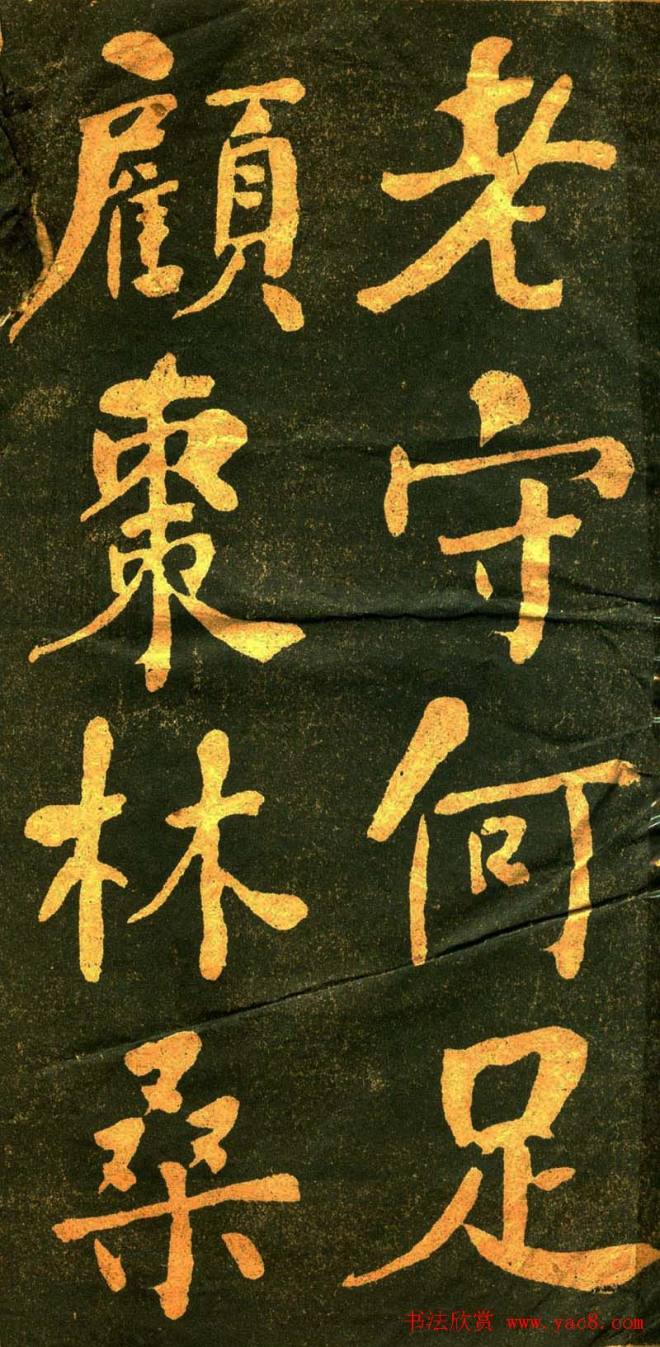 老守何足
顧棗林桑
书法欣赏 www.yac8.com